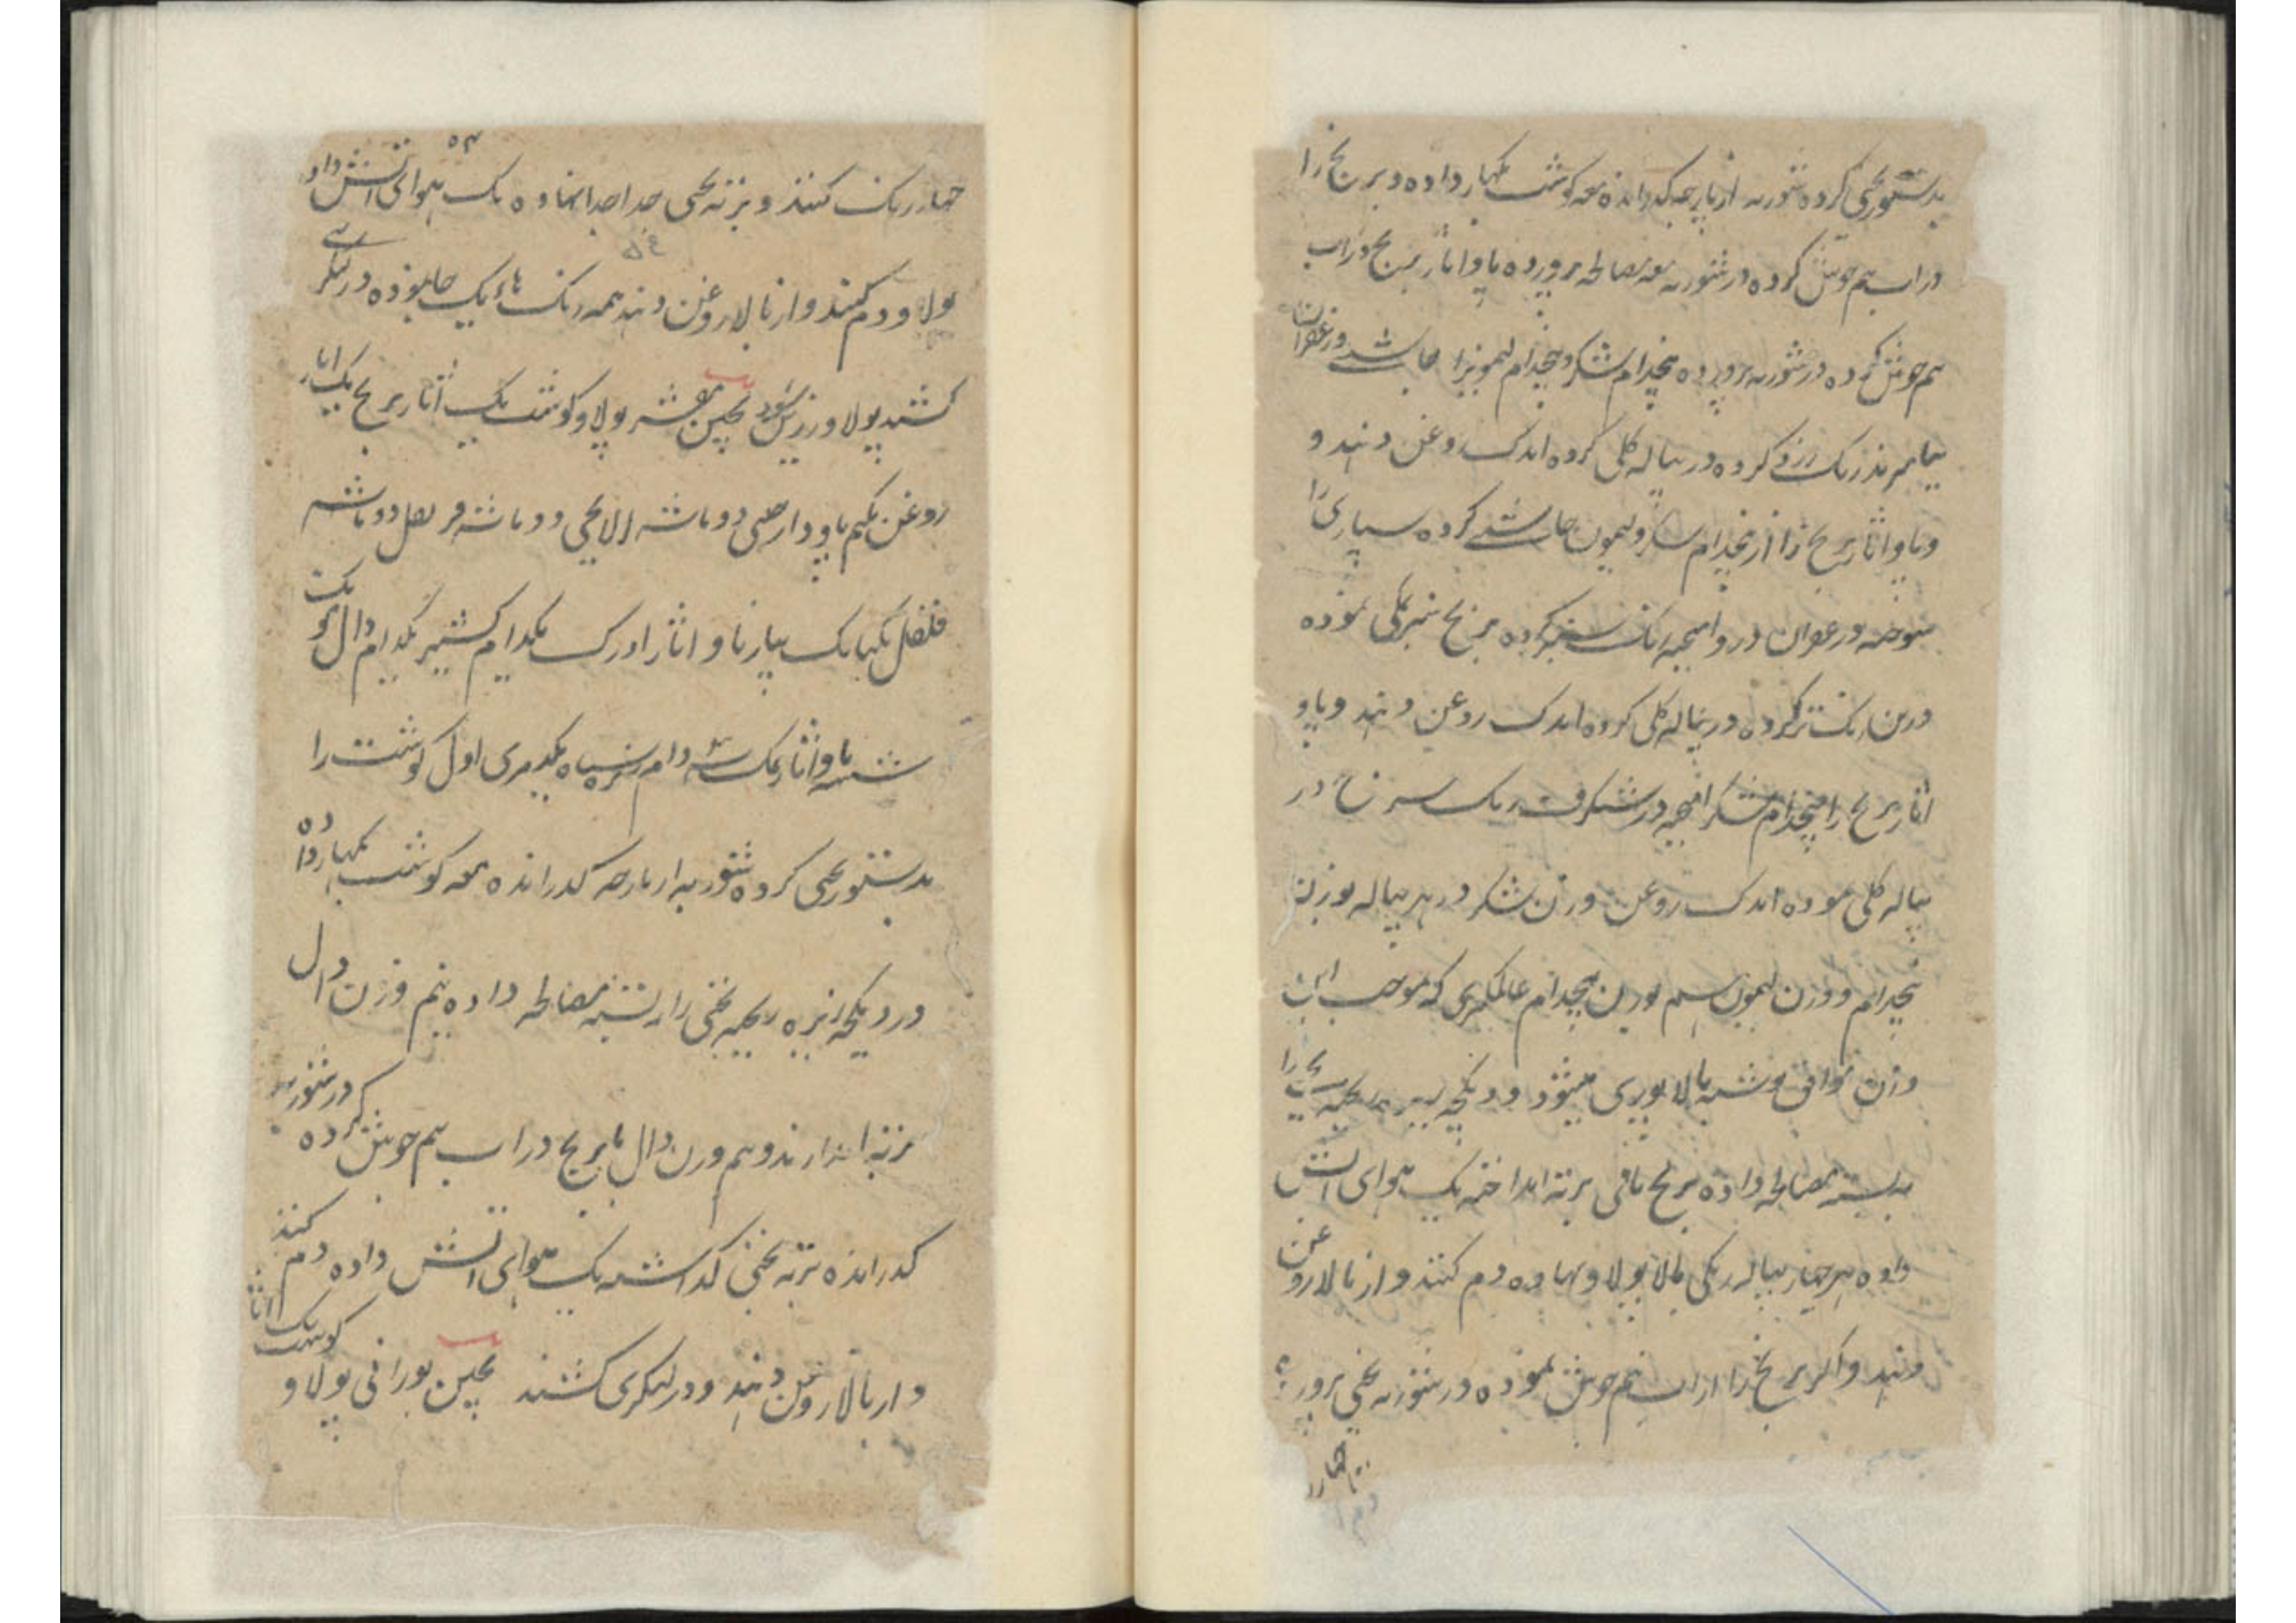 بدستور یخنی کرده شوربه از پارچه گذرانده معه گوشت بگهار داده و برنج را
در آب نیم جوش کرده در شوربه معه مصالحه پرورده پاو اثار برنج در آب
نیم جوش کرده در شوربه پرورده پنجدام شکر و پنجدام لیمو نیرا چاشنی و زعفران
بیامیزند رنگ زرد کرده در پیاله گلی کرده اندک روغن دهند و
و پاو اثار برنج را از پنجدام شکر و لیمون چاشنی کرده سپاری را
سوخته و زعفران در و امیخته رنگ سبز کرده برنج نیز گلی نموده
درین رنگ تر کرده در پیاله گلی کرده اندک روغن دهند و پاو
اثار برنج را پنجدام شکر امیخته در شنگرف رنگ سرخ در
پیاله گلی نموده اندک روغن وزن شکر در هر پیاله بوزن
پنجدام و وزن لیمون هم بوزن پنجدام عالمگیری که موجب این
وزن موافق نوشته بالا پوری میشود و دیگچه زیره یخنی را
بدسته مصالحه داده برنج باقی برته انداخته یک هوای آتش
داده هر چهار پیاله رنگی بالا پولاو نهاده دم کنند و از بالا روغن
دهند و اگر برنج را از آب نیم جوش نموده در شوربه یخنی پرور
چهار
۵۳
چهار رنگ کنند و برته یخنی جدا جدا نهاده یک هوای آتش داده
پولاو دم کنند و از بالا روغن دهند همه رنگ ها یک جا نموده در لنگری
۵۴
کشند پولاو زرین شود پختن قبشه پولاو گوشت یک اثار برنج یک اثار
روغن نیم پاو دارچینی دو ماشه الایچی دو ماشه قرنفل دو ماشه
فلفل یکماشه پیاز پاو اثار ادرک یکدام کشنیز یکدام دال مونگ
شسته پاو اثار نمک سه دام زیره سیاه یکدمری اول گوشت را
بدستور یخنی کرده شوربه از پارچه گذرانده معه گوشت بگهار داده
در دیگچه زیره ریخته یخنی را بسته مصالحه داده نیم وزن دال
برته اندازند و نیم وزن دال با برنج در آب نیم جوش کرده در شوربه
گذرانده برته یخنی گذاشته یک هوای آتش داده دم کنند
و از بالا روغن دهند و در لنگری کشند پختن بورانی پولاو گوشت یک اثار